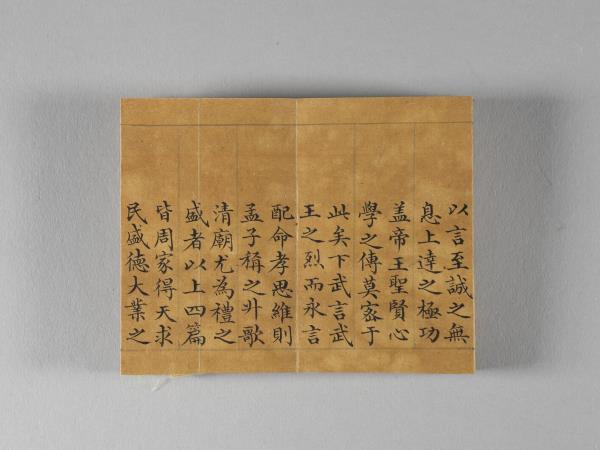 以言至誠之無
息上達之極功
盖帝王聖賢心
學之傳莫宻于
此矣下武言武
王之烈而永言
配命孝思維則
孟子稱之升歌
清廟尤為禮之
盛者以上四篇
皆周家得天求
民盛徳大業之